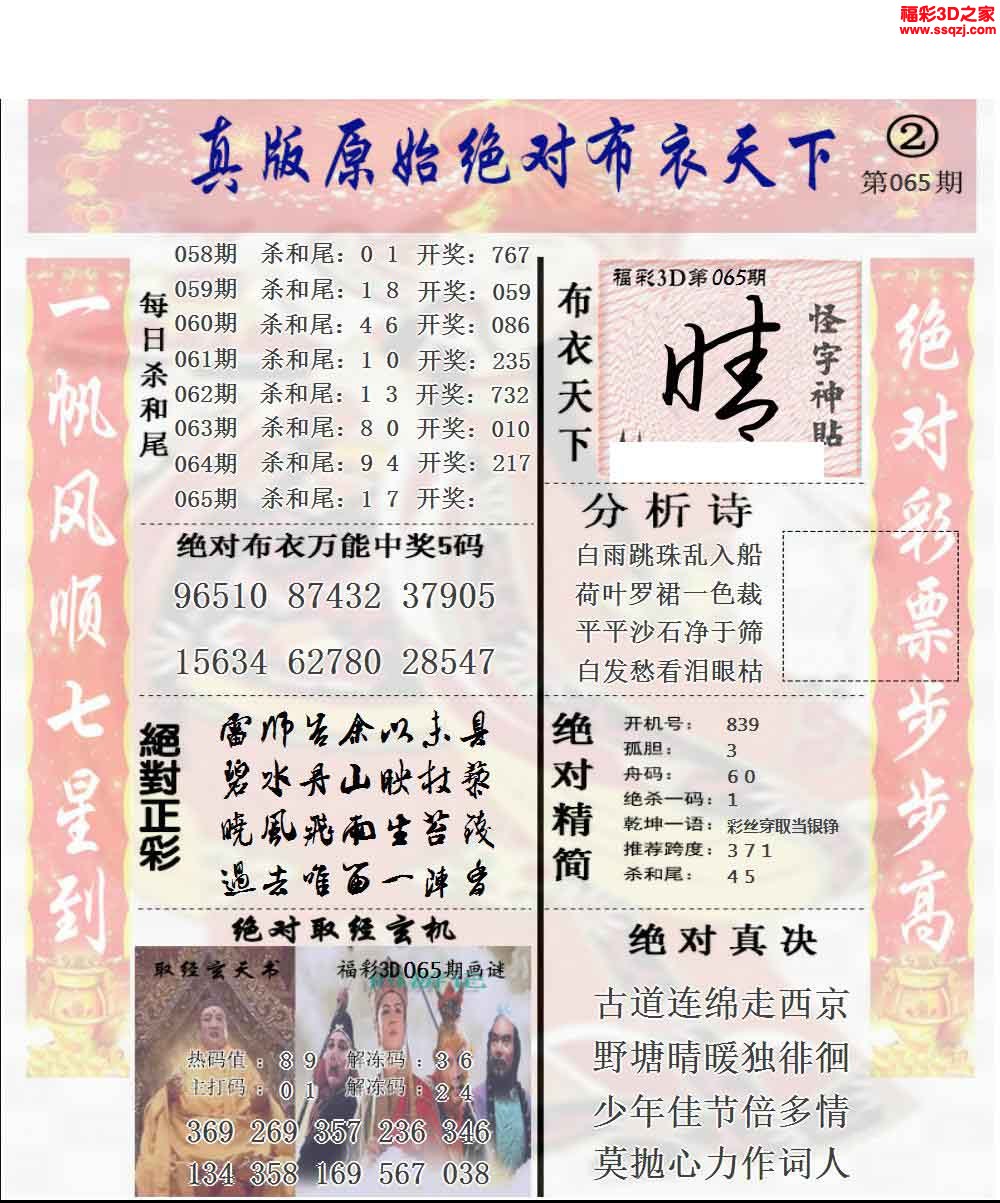 福彩3D之家
www.ssqzj.com
真版原始绝对布衣天下
②
第065期
一帆风顺七星到
每日杀和尾
058期 杀和尾：0 1 开奖：767
059期 杀和尾：1 8 开奖：059
060期 杀和尾：4 6 开奖：086
061期 杀和尾：1 0 开奖：235
062期 杀和尾：1 3 开奖：732
063期 杀和尾：8 0 开奖：010
064期 杀和尾：9 4 开奖：217
065期 杀和尾：1 7 开奖：
绝对布衣万能中奖5码
96510 87432 37905
15634 62780 28547
絕對正彩
雷师告余以未具
碧水丹山映杖藜
晓風飛雨生苔
過去唯留一陣香
绝对取经玄机
取经玄天书
福彩3D065期画谜
热码值：8 9 解冻码：3 6
主打码：0 1 解冻码：2 4
369 269 357 236 346
134 358 169 567 038
布衣天下
福彩3D第065期
晴
怪字神貼
分析诗
白雨跳珠乱入船
荷叶罗裙一色裁
平平沙石净于筛
白发愁看泪眼枯
绝对精简
开机号：839
孤胆：3
舟码：6 0
绝杀一码：1
乾坤一语：彩丝穿取当银铮
推荐跨度：3 7 1
杀和尾：4 5
绝对真决
古道连绵走西京
野塘晴暖独徘徊
少年佳节倍多情
莫抛心力作词人
绝对彩票步步高